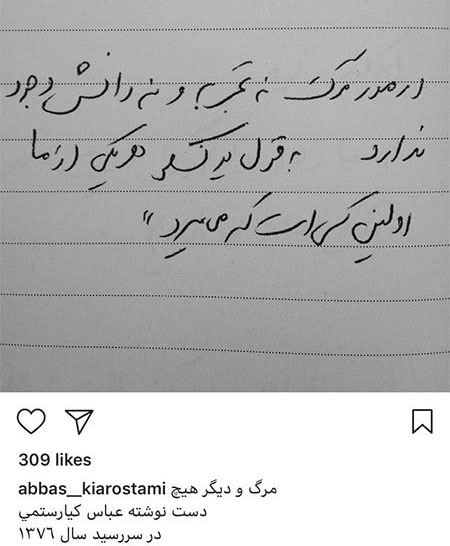 در مورد مرگ نه تجربه و نه دانش وجود
ندارد به قول یونسکو هر یکی از ما
اولین کسی است که می‌میرد"
309 likes
abbas__kiarostami مرگ و دیگر هیچ
دست نوشته عباس کیارستمي
در سررسید سال ١٣٧٦